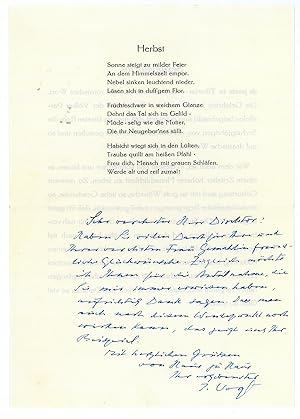 Herbst
Sonne steigt zu milder Feier
An dem Himmelszelt empor.
Nebel sinken leuchtend nieder,
Lösen sich in duft'gem Flor.
Früchteschwer in weichem Glanze
Dehnt das Tal sich im Gefild -
Müde-selig wie die Mutter,
Die ihr Neugebor'nes stillt.
Habicht wiegt sich in den Lüften,
Traube quillt am heißen Pfahl -
Freu dich, Mensch mit grauen Schläfen,
Werde alt und reif zumal!
Sehr verehrter Herr Direktor!
Haben Sie vielen Dank für Ihre und
Ihrer verehrten Frau Gemahlin freund-
liche Glückwünsche. Zugleich möchte
ich Ihnen für die Anteilnahme, die
Sie mir immer erwiesen haben,
aufrichtig Dank sagen. Das man
auch nach diesem Wendepunkt noch
wirken kann, das zeigt uns Ihr
Beispiel.
Mit herzlichen Grüßen
von Haus zu Haus
Ihr ergebenster